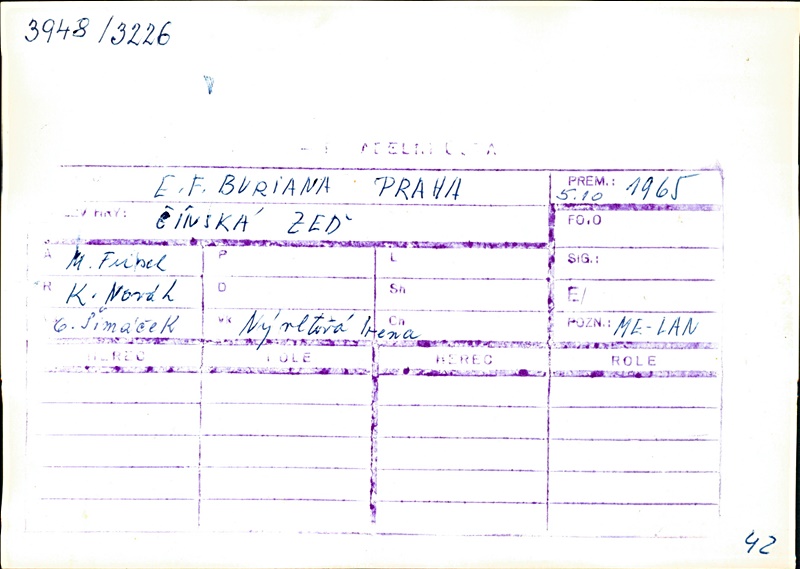 3948/3226
E. F. BURIANA PRAHA
PREM.: 5.10 1965
HRY: ČÍNSKÁ ZEĎ
FOTO
A M. Frisch P L SIG.:
R K. Novák D Sh E/
O. Šimáček Vk Nývltová Irena Ch POZN.: ME-LAN
HEREC ROLE HEREC ROLE
42